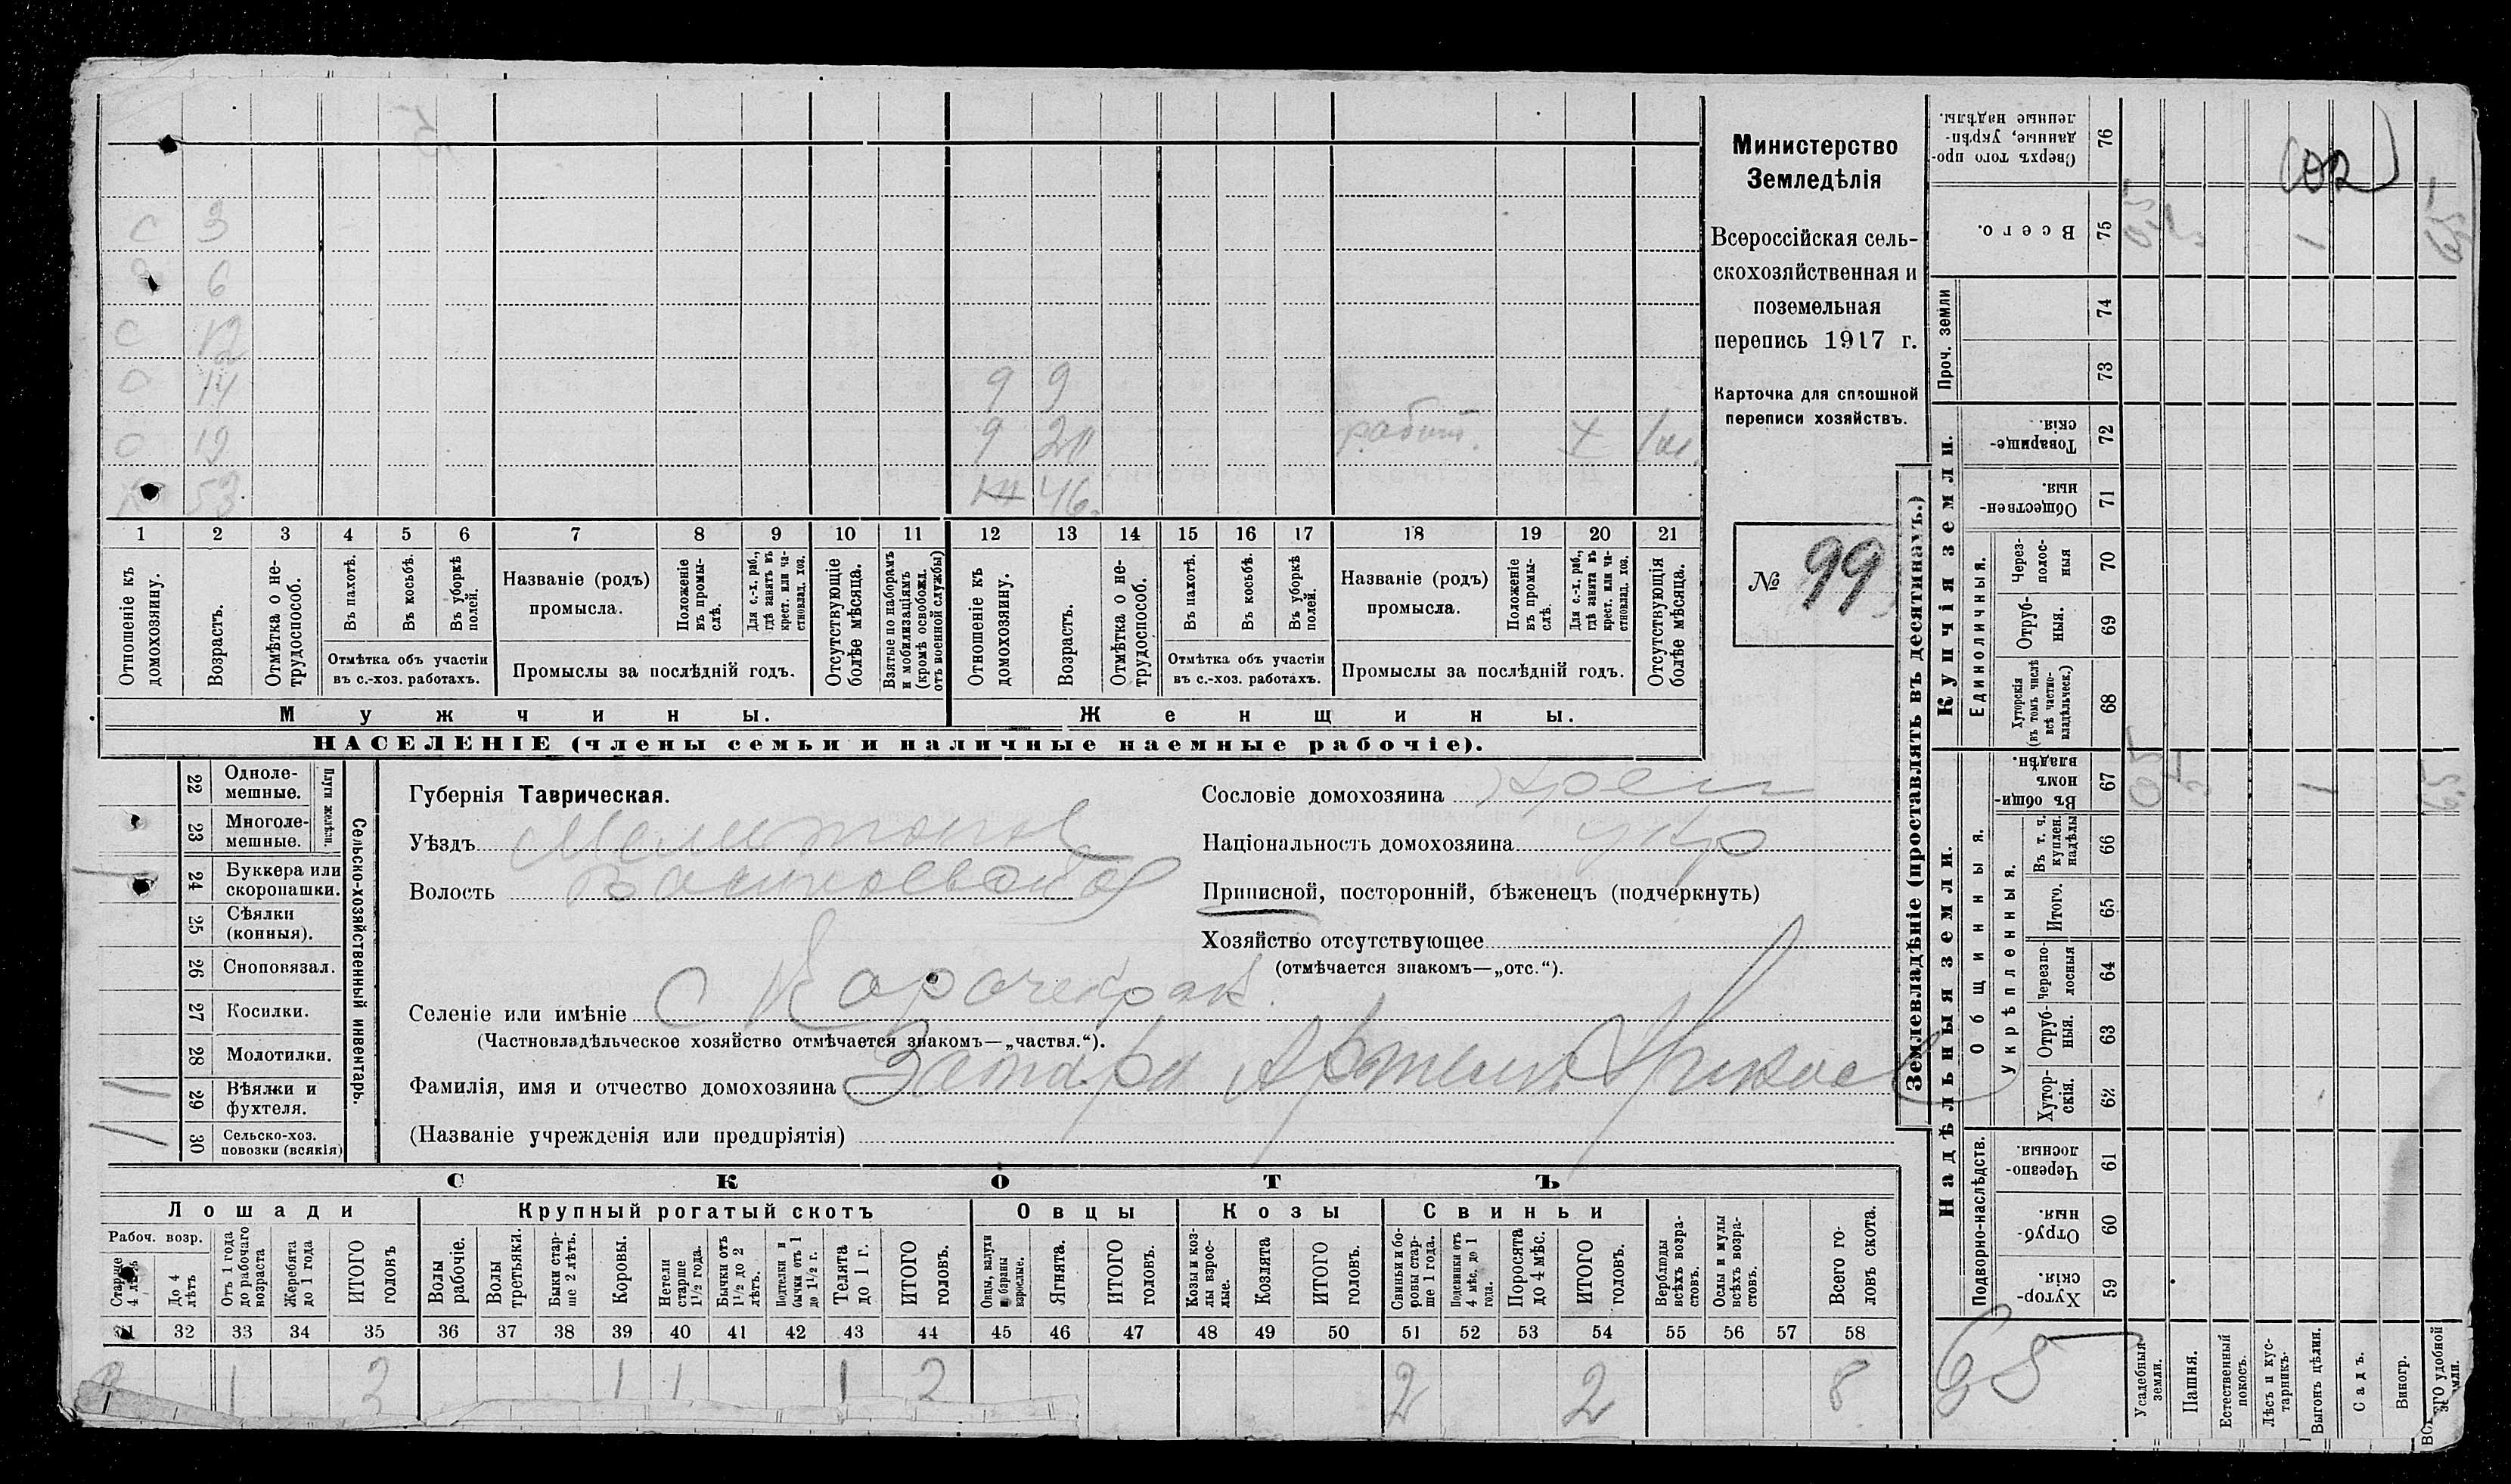 С 3
6
С 12
О 14
9 9
О 19
9 20
работ.
53
46
1 2 3 4 5 6 7 8 9 10 11 12 13 14 15 16 17 18 19 20 21
Отношеніе къ домохозяину.
Возрастъ.
Отмѣтка о не-
трудоспособ.
Въ пахотѣ.
Въ косьбѣ.
Въ уборкѣ
полей.
Отмѣтка объ участіи
въ с.-хоз. работахъ.
Названіе (родъ)
промысла.
Положеніе
въ промы-
слѣ.
Для с.-х. раб.,
гдѣ занятъ въ
крест. или ча-
стновлад. хоз.
Промыслы за послѣдній годъ.
Отсутствующіе
болѣе мѣсяца.
Взятые по наборамъ
и мобилизаціямъ
(кромѣ освобожд.
отъ военной службы)
Отношеніе къ
домохозяину.
Возрастъ.
Отмѣтка о не-
трудоспособ.
Въ пахотѣ.
Въ косьбѣ.
Въ уборкѣ
полей.
Отмѣтка объ участіи
въ с.-хоз. работахъ.
Названіе (родъ)
промысла.
Положеніе
въ промы-
слѣ.
Для с.-х. раб.,
гдѣ занята въ
крест. или ча-
стновлад. хоз.
Промыслы за послѣдній годъ.
Отсутствующія
болѣе мѣсяца.
Мужчины.
Женщины.
НАСЕЛЕНІЕ (члены семьи и наличные наемные рабочіе).
Министерство
Земледѣлія
Всероссійская сель-
скохозяйственная и
поземельная
перепись 1917 г.
Карточка для сплошной
переписи хозяйствъ.
№ 99
22 Одноле-
мешные.
23 Многоле-
мешные.
Плуги желѣзн.
24 Буккера или
скоропашки.
25 Сѣялки
(конныя).
26 Сноповязал.
27 Косилки.
28 Молотилки.
29 Вѣялки и
фухтеля.
30 Сельско-хоз.
повозки (всякія)
Сельско-хозяйственный инвентарь.
Губернія Таврическая.
Уѣздъ Мелитопол
Волость Васильевская
Селеніе или имѣніе с Карачекрак
(Частновладѣльческое хозяйство отмѣчается знакомъ—„частвл.“).
Фамилія, имя и отчество домохозяина
(Названіе учрежденія или предпріятія)
Сословіе домохозяина крест
Національность домохозяина укр
Приписной, посторонній, бѣженецъ (подчеркнуть)
Хозяйство отсутствующее
(отмѣчается знакомъ—„отс.“).
СКОТЪ
Лошади
Крупный рогатый скотъ
Овцы
Козы
Свиньи
Рабоч. возр.
Старше
4 лѣтъ
До 4
лѣтъ
Отъ 1 года
до рабочаго
возраста
Жеребята
до 1 года
ИТОГО
головъ
Волы
рабочіе.
Волы
третьяки.
Быки стар-
ше 2 лѣтъ.
Коровы.
Нетели
старше
1½ года.
Бычки отъ
1½ до 2
лѣтъ.
Подтелки и
бычки отъ 1
до 1½ г.
Телята
до 1 г.
ИТОГО
головъ.
Овцы, валухи
и бараны
взрослые.
Ягнята.
ИТОГО
головъ.
Козы и коз-
лы взрос-
лые.
Козлята
ИТОГО
головъ.
Свиньи и бо-
ровы стар-
ше 1 года.
Подсвинки отъ
4 мѣс. до 1
года.
Поросята
до 4 мѣс.
ИТОГО
головъ.
Верблюды
всѣхъ возра-
стовъ.
Ослы и мулы
всѣхъ возра-
стовъ.
Всего го-
ловъ скота.
31 32 33 34 35 36 37 38 39 40 41 42 43 44 45 46 47 48 49 50 51 52 53 54 55 56 57 58
1 1 1 1 2 2 2 8
Землевладѣніе (проставлять въ десятинахъ.)
Надѣльныя земли.
Купчія земли.
Проч. земли
Подворно-наслѣдств.
Общинныя.
Укрѣпленныя.
Единоличныя.
Сверхъ того про-
данные, укрѣп-
ленные надѣлы.
76
Всего.
75
74
73
Товарище-
скія.
72
Обществен-
ныя.
71
Через-
полос-
ныя
70
Отруб-
ныя.
69
Хуторскія
(въ томъ числѣ
всѣ частно-
владѣльческ.)
68
Въ общи-
номъ
владѣн.
67
Въ т. ч.
куплен.
надѣлы
66
Итого.
65
Черезпо-
лосныя
64
Отруб-
ныя.
63
Хутор-
скія.
62
Черезпо-
лосныя
61
Отруб-
ныя.
60
Хутор-
скія.
59
65
Усадебныя
земли.
Пашня.
Естественный
покосъ.
Лѣсъ и кус-
тарникъ.
Выгонъ цѣлин.
Садъ.
Виногр.